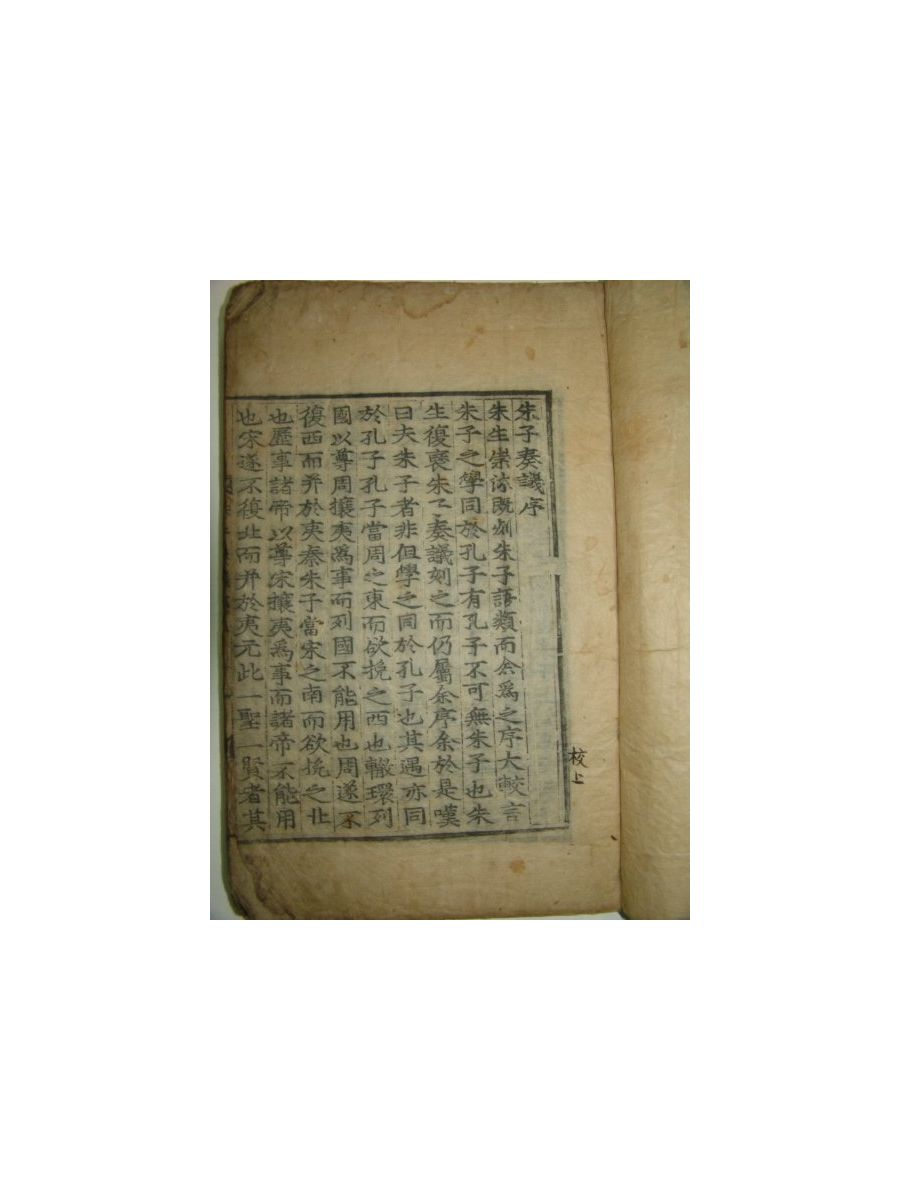 朱子奏議序
朱生崇沐既刻朱子語類而余爲之序大較言
朱子之學同於孔子有孔子不可無朱子也朱
生復裒朱子奏議刻之而仍屬余序余於是嘆
曰夫朱子者非但學之同於孔子也其遇亦同
於孔子孔子當周之東而欲挽之西也轍環列
國以尊周攘夷爲事而列國不能用也周遂不
復西而并於夷秦朱子當宋之南而欲挽之北
也歷事諸帝以尊宋攘夷爲事而諸帝不能用
也宋遂不復北而并於夷元此一聖一賢者其
校上